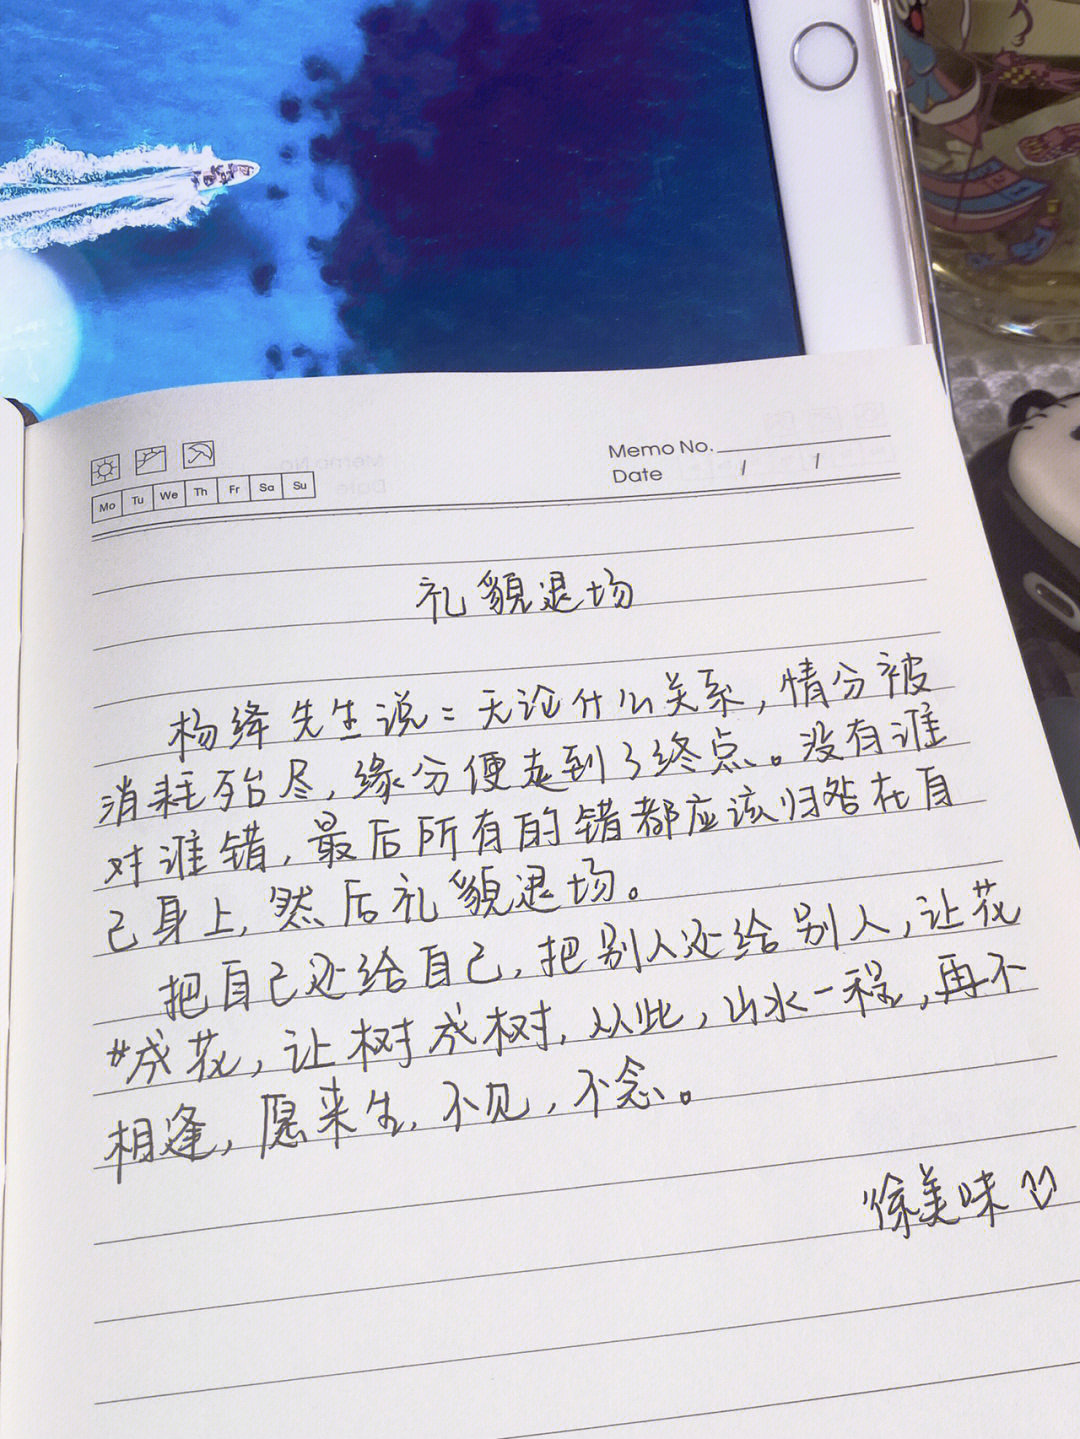 Memo No.
Date / /
Mo Tu We Th Fr Sa Su
礼貌退场
杨绛先生说：无论什么关系，情分被
消耗殆尽，缘分便走到了终点。没有谁
对谁错，最后所有的错都应该归咎在自
己身上，然后礼貌退场。
把自己还给自己，把别人还给别人，让花
成花，让树成树，从此，山水一程，再不
相逢，愿来生，不见，不念。
徐美味